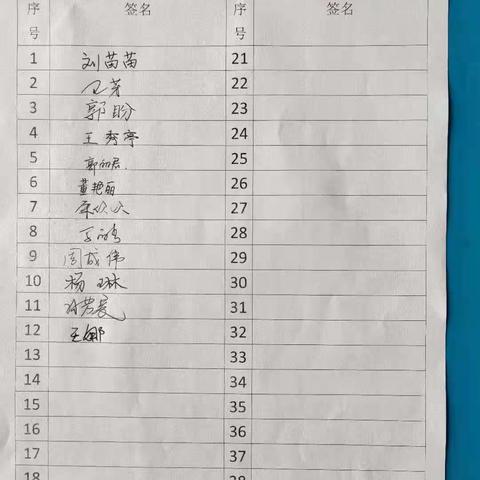 序号 签名 序号 签名
1 刘苗苗 21
2 22
3 郭盼 23
4 王秀亭 24
5 25
6 董艳丽 26
7 27
8 28
9 周成伟 29
10 杨琳 30
11 31
12 王娜 32
13 33
14 34
15 35
16 36
17 37
18 38